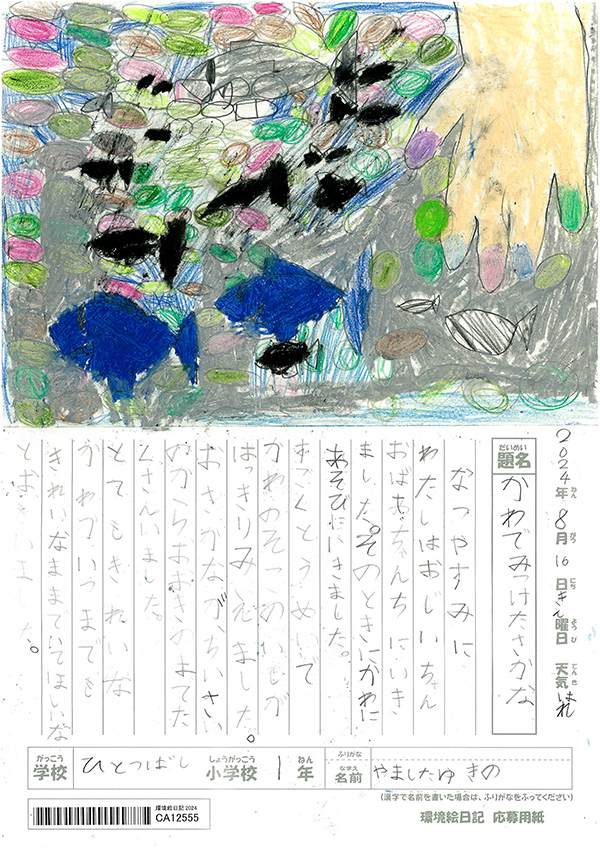 2024年 8月 16日 きん曜日 天気 はれ
ねん がつ にち ようび てんき
だいめい
題名 かわでみつけたさかな
なつやすみに
わたしはおじいちゃん
おばあちゃんちにいき
ました。そのときにかわに
あそびにいきました。
すごくとうめいで
かわのそこのいしが
はっきりみえました。
おさかながちいさい
のからおおきのまてた
くさんいました。
とてもきれいな
かわがいつまでも
きれいなままでいてほしいな
とおもいました。
がっこう しょうがっこう ねん ふりがな
学校 ひとつばし 小学校 1年 名前 やましたゆきの
なまえ
(漢字で名前を書いた場合は、ふりがなをふってください)
環境絵日記2024
CA12555
環境絵日記 応募用紙